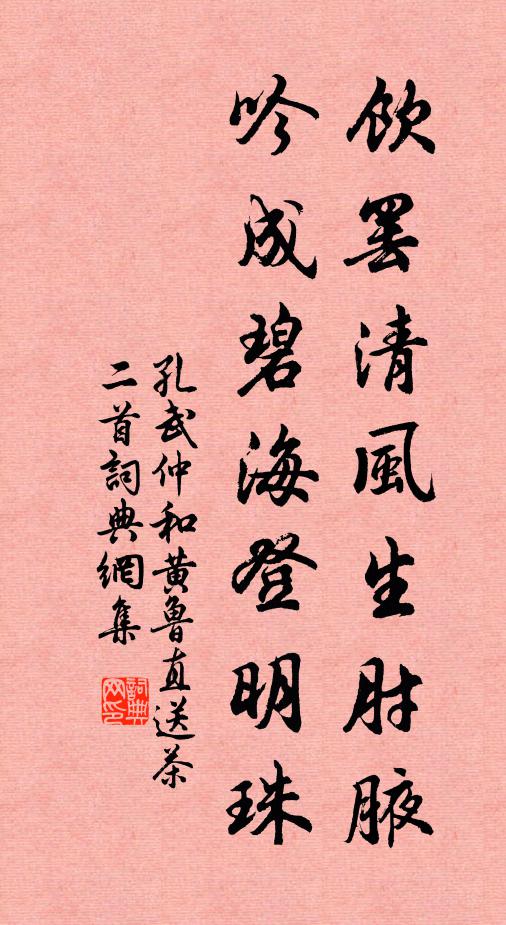 飲罷清風生肘腋
吟成碧海登明珠
孔武仲和黃魯直送茶
二首詞典網集
詞典网印